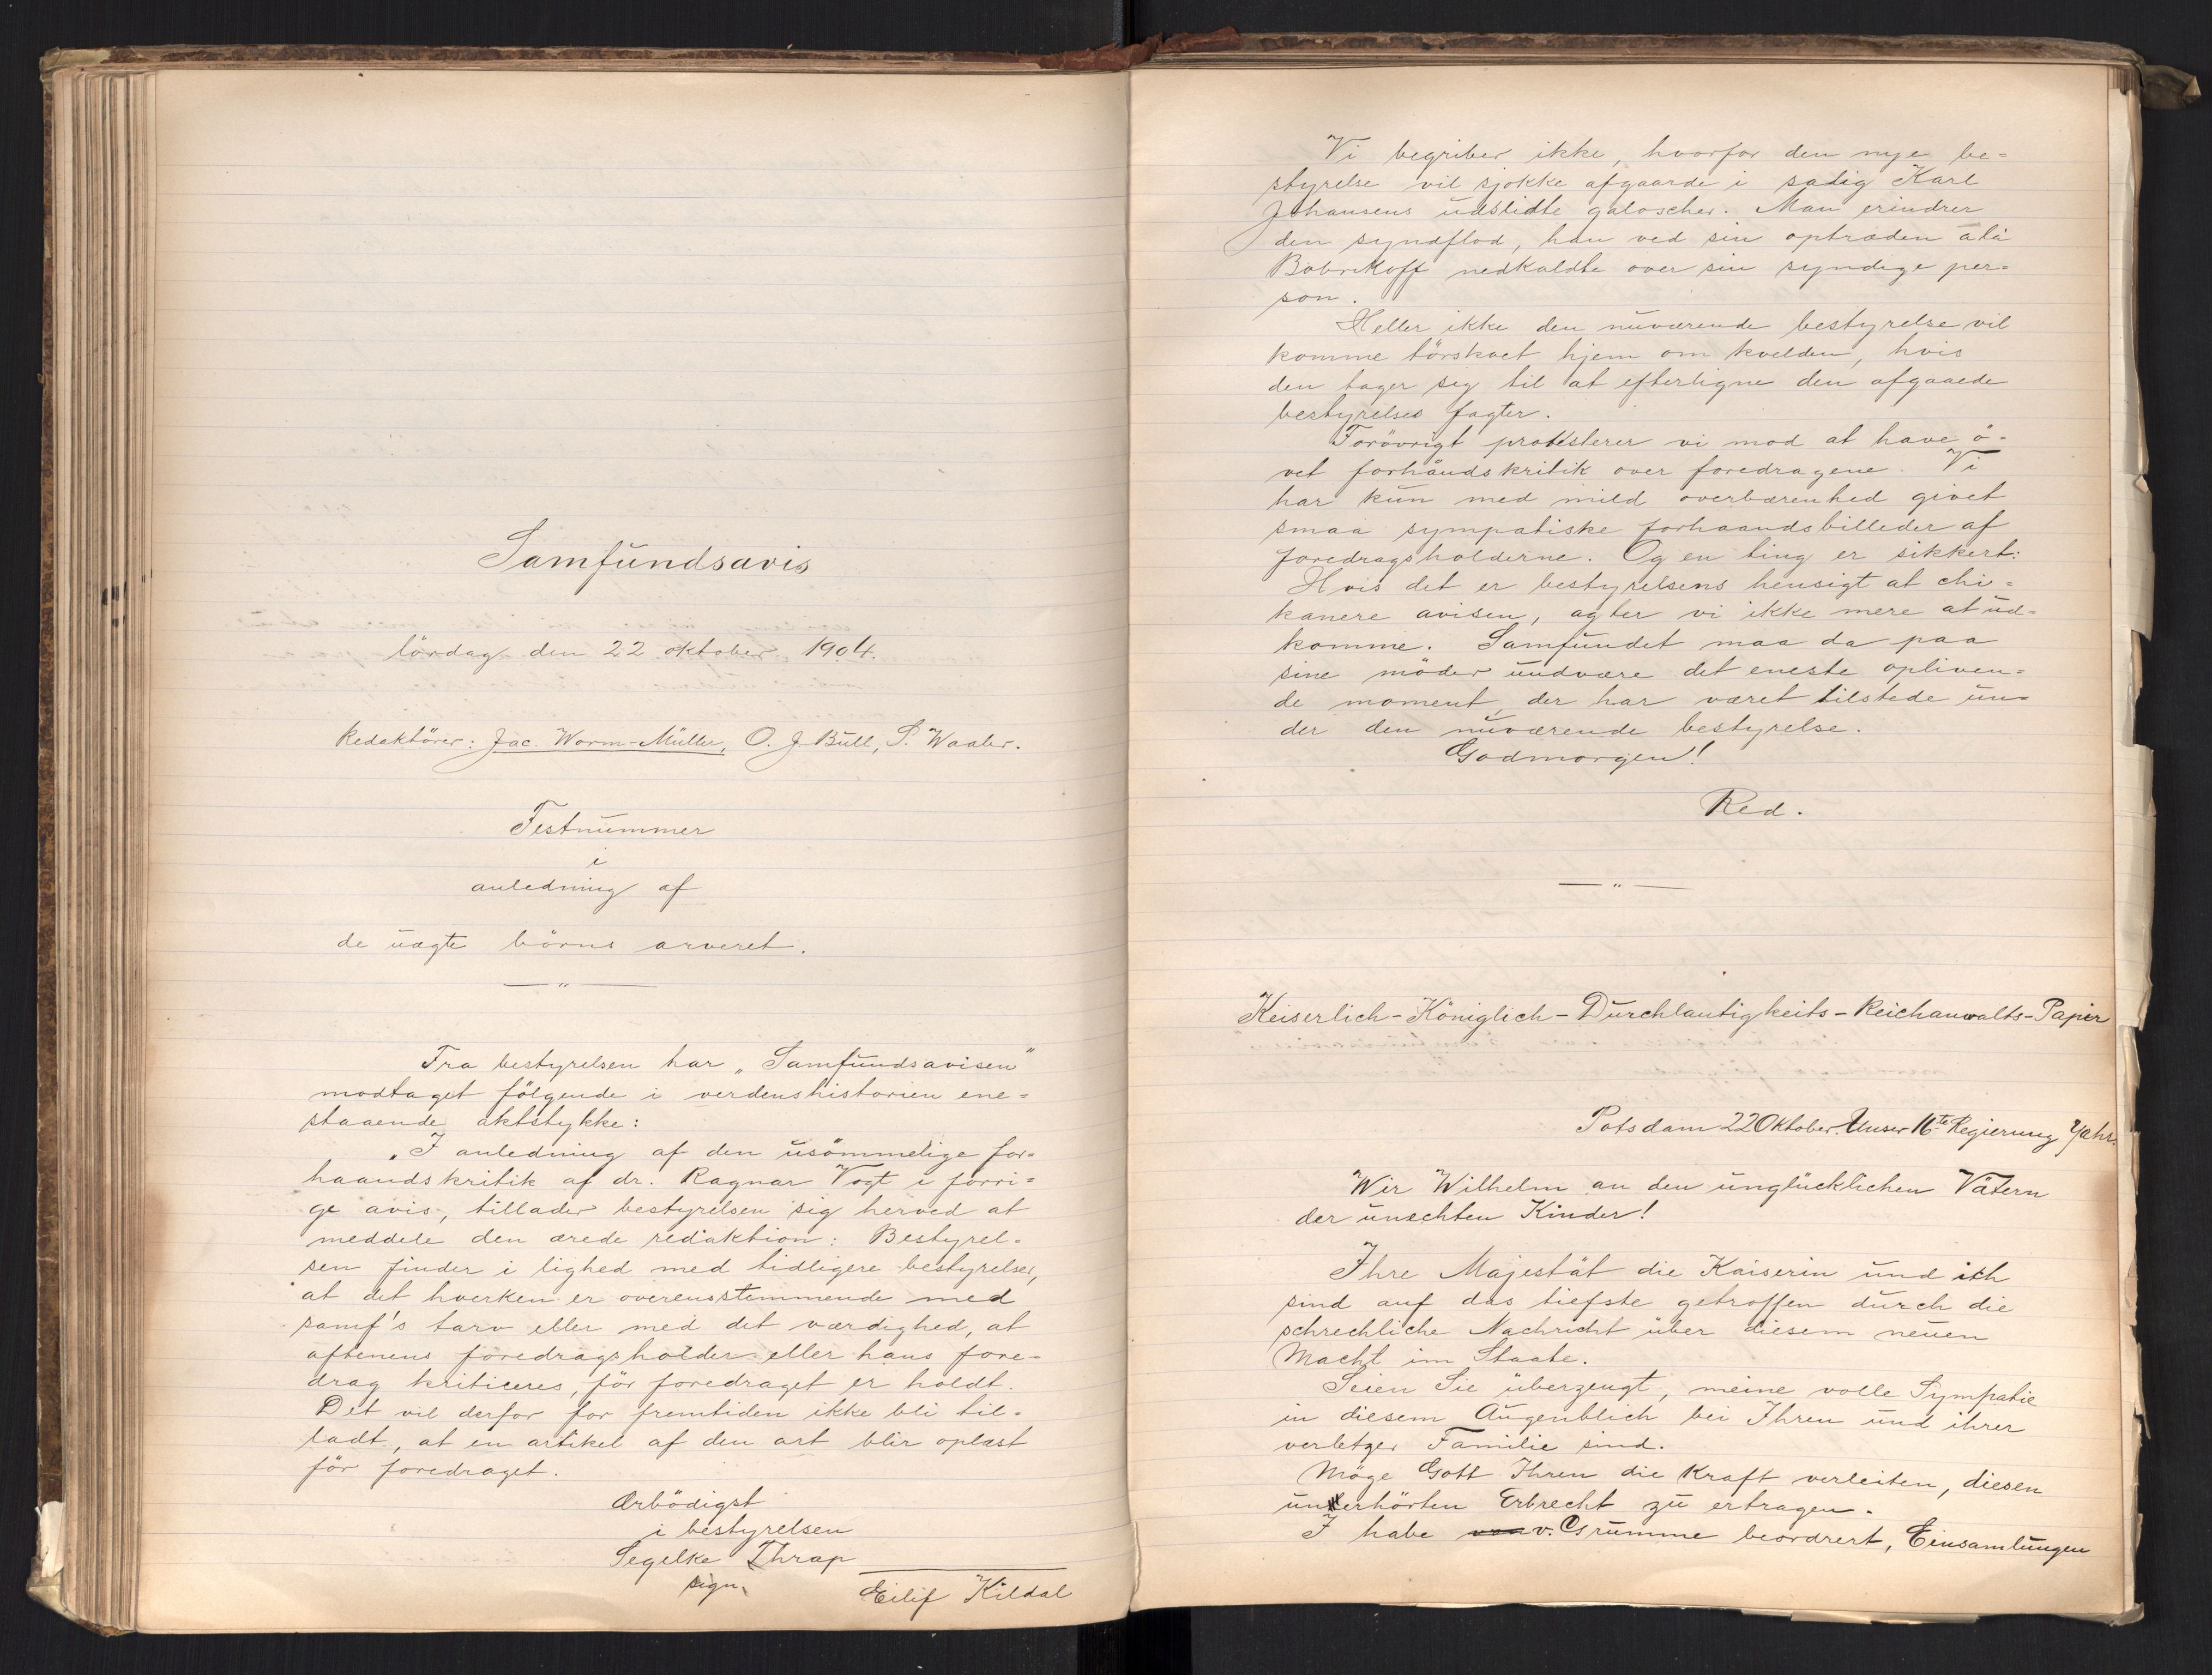 Samfundsavis
lördag den 22 oktober 1904.
Redaktörer: Jac. Worm-Müller, O. J. Bull, S. Waaler.
Festnummer
i
anledning af
de uægte börns arveret.
Fra bestyrelsen har „Samfundsavisen"
modtaget fölgende i verdenshistorien ene=
staaende aktstykke:
„I anledning af den usömmelige for=
haandskritik af dr. Ragnar Vogt i forri=
ge avis, tillader bestyrelsen sig herved at
meddele den ærede redaktion: Bestyrel=
sen finder i lighed med tidligere bestyrelser,
at det hverken er overensstemmende med
samf's tarv eller med det værdighed, at
aftenens foredragsholder eller hans fore=
drag kritiseres, för foredraget er holdt.
Det vil derfor for fremtiden ikke bli til=
ladt, at en artikel af den art blir oplæst
för foredraget.
Ærbödigst
i bestyrelsen
Segelke Thrap
sign.
Eilif Kildal
Vi begriber ikke, hvorfor den nye be=
styrelse vil sjokke afgaarde i salig Karl
Johansens udslidte galoscher. Man erindrer
den syndflod, han ved sin optræden àlà
Bobrikoff nedkaldte over sin syndige per=
son.
Heller ikke den nuværende bestyrelse vil
komme törskoet hjem om kvelden, hvis
den tager sig til at efterligne den afgaaede
bestyrelses fagter.
Forövrigt protesterer vi mod at have ö=
vet forhåndskritik over foredragene. Vi
har kun med mild overbærenhed givet
smaa sympatiske forhaandsbilleder af
foredragsholderne. Og en ting er sikkert:
Hvis det er bestyrelsens hensigt at chi=
kanere avisen, agter vi ikke mere at ud=
komme. Samfundet maa da paa
sine möder undvære det eneste opliven=
de moment, der har været tilstede un=
der den nuværende bestyrelse.
Godmorgen!
Red.
Keiserlich-Königlich-Durchlautigkeits-Reichanwalts-Papir
Potsdam 22 Oktober. Unser 16te Regierung Yahr.
Wir Wilhelm an den unglücklichen Vätern
der unechten Kinder!
Ihre Majestät die Kaiserin und ich
sind auf das tiefste getroffen durch die
schrechliche Nachricht über diesem neuen
Macht im Staate.
Seien Sie überzeugt, meine volle Sympatie
in diesem Augenblich bei Ihren und ihrer
verletzer Familie sind.
Möge Gott Ihren die Kraft verleiten, diesen
unerhörten Erbrecht zu ertragen.
I habe v. Grumme beordrert, Einsamlungen